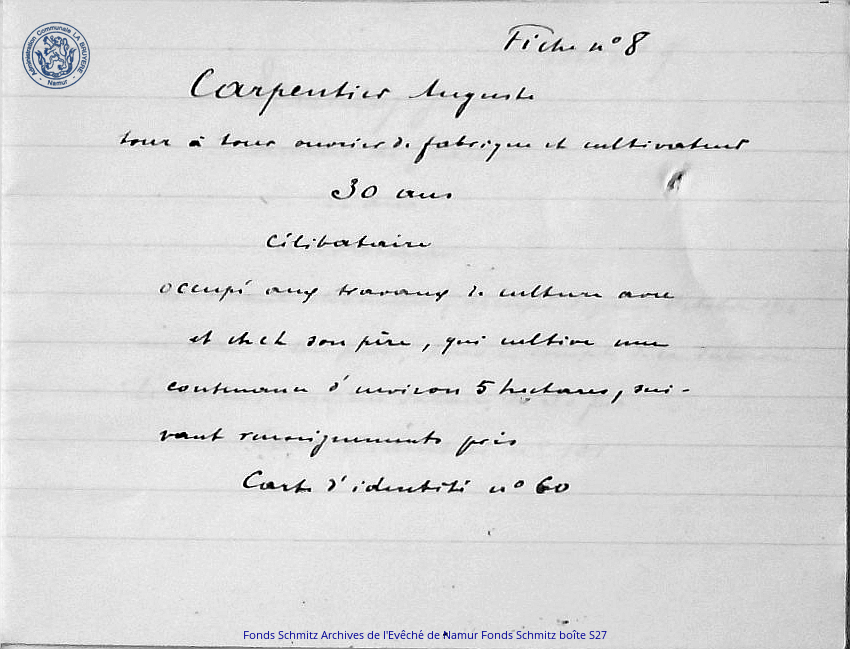 Administration Communale LA BRUYERE
- Namur -
Fiche n° 8
Carpentier Auguste
tour à tour ouvrier de fabrique et cultivateur
30 ans
Célibataire
occupé aux travaux de culture avec
et chez son père, qui cultive une
contenance d'environ 5 hectares, sui-
vant renseignements pris
Carte d'identité n° 60
Fonds Schmitz Archives de l'Evêché de Namur Fonds Schmitz boîte S27